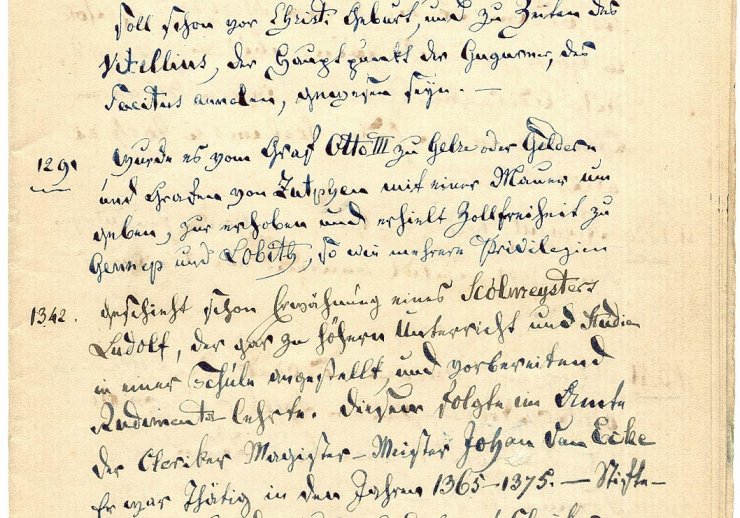 soll schon vor Christi Geburt, und zu Zeiten des
Vitellius, der Hauptpunkt der Gugerner, des
Tacitus annalen, gewesen seyn. —
129. wurde es vom Graf Otto III zu Gelre oder Geldern
und Grafen von Zutphen mit einer Mauer um
geben, zur erhoben und erhielt Zollfreiheit zu
Gennep und Lobith, so wie mehrere Privilegien
1342. geschieht schon Erwähnung eines Scolmeysters
Ludolf, der gar zu höhern Unterricht und Studien
in einer Schule angestellt, und vorbereitend
Rudimenta lehrte. Diesem folgte im Amte
der Cleriker Magister – Meister Johan van Ecke
Er war thätig in den Jahren 1365–1375. — Stifts-